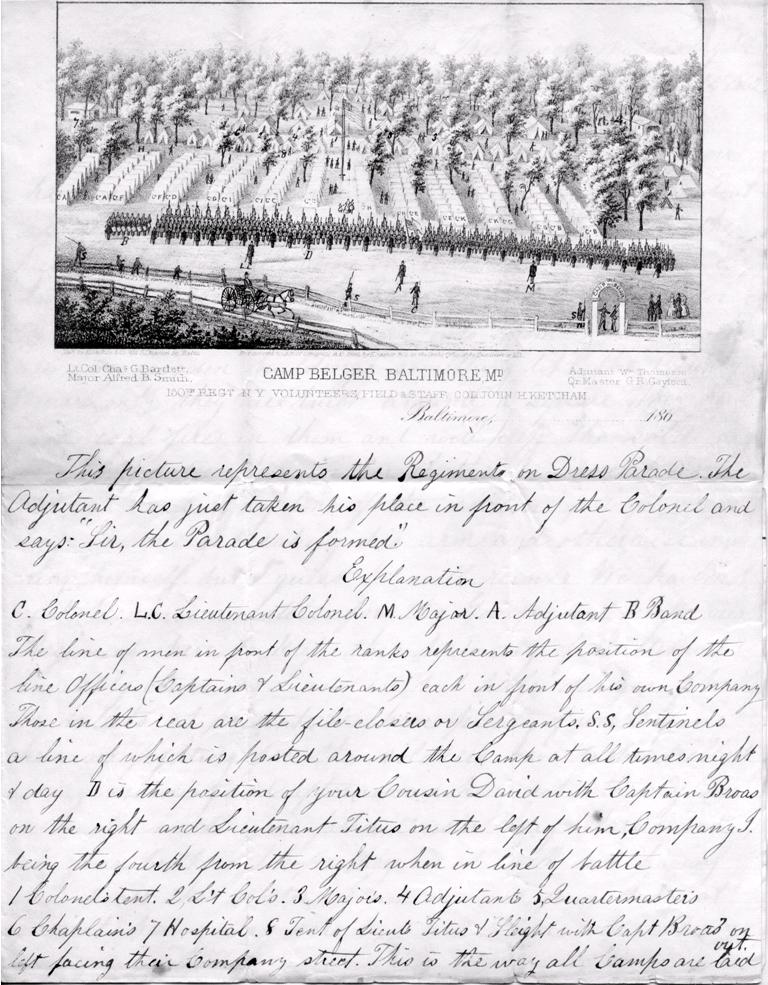 Lt. Col. Chas. G. Bartlett.
Major Alfred B. Smith.
CAMP BELGER, BALTIMORE MD
Adjutant Wm Thompson.
Qr. Master G. R. Gaylord.
150TH REGT N.Y. VOLUNTEERS, FIELD & STAFF, COL. JOHN H. KETCHAM.
Baltimore, 186
This picture represents the Regiments on Dress Parade. The
Adjutant has just taken his place in front of the Colonel and
says: "Sir, the Parade is formed".
Explanation
C. Colonel. L.C. Lieutenant Colonel. M. Major. A. Adjutant B Band
The line of men in front of the ranks represents the position of the
line Officers (Captains & Lieutenants) each in front of his own Company
Those in the rear are the file-closers or Sergeants. S.S, Sentinels
a line of which is posted around the Camp at all times night
& day D is the position of your Cousin David with Captain Broas
on the right and Lieutenant Titus on the left of him, Company I.
being the fourth from the right when in line of battle
1 Colonel's tent. 2, L't Col's. 3 Majors. 4 Adjutants 5, Quartermasters
6 Chaplain's 7 Hospital. 8 Tent of Lieuts Titus & Sleight with Capt Broas' on
left facing their Company street. This is the way all Camps are laid
out.